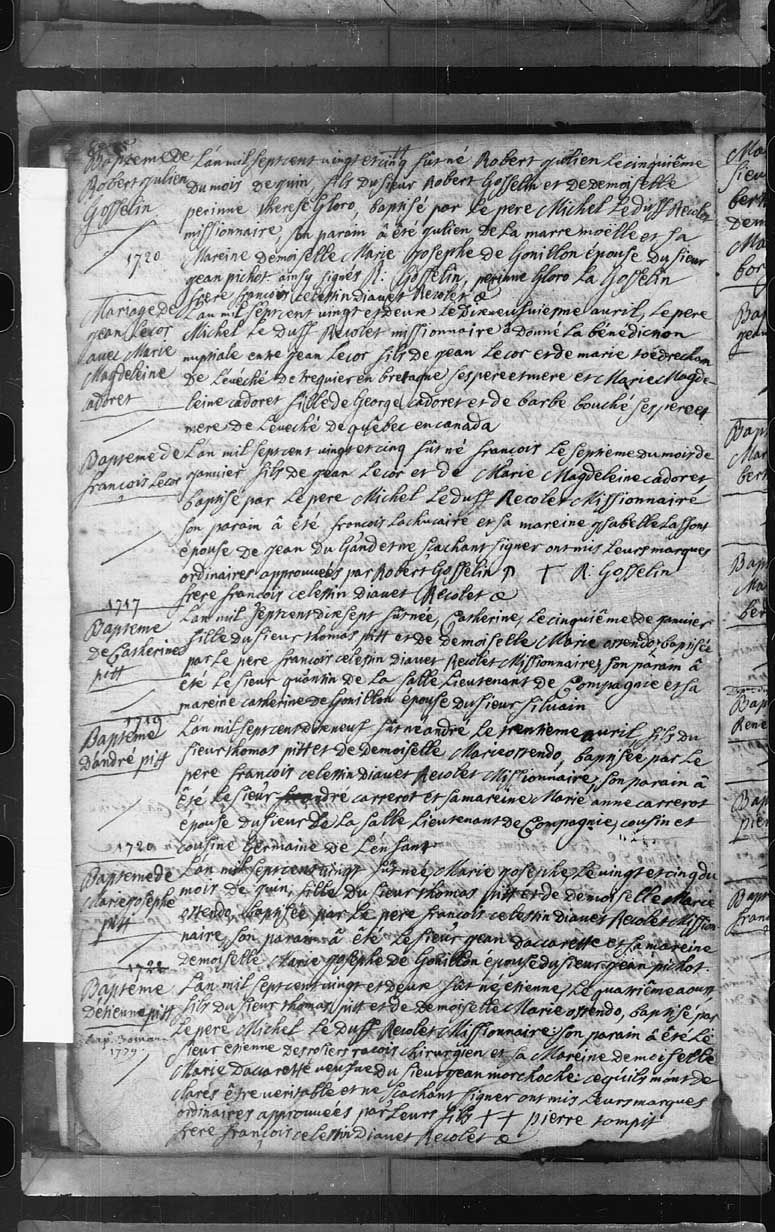 Bapteme de
Robert Julien
Gosselin
1720
L'an mil sept cent vingt et cinq fût né Robert Julien le cinquiême
du mois de juin, fils du sieur Robert Gosselin et de demoiselle
perinne therese Gloro, baptisé par le pere Michel Le Duff Recolet
missionnaire, son parain â été julien de La marre moëlle et sa
Mareine demoiselle Marie Josephe de Gonillon épouse du sieur
jean pichot ainsy signés R: Gosselin, perinne Gloro La Gosselin
frere françois celestin Diauet Recolet
Mariage de
jean Lecor
avec Marie
Magdeleine
cadoret
L'an mil sept cent vingt et deux le Dixneufviesme avril, Le pere
Michel Le Duff Recolet missionnaire â Donné La bénédiction
nuptiale entre jean Lecor fils de jean Lecor et de marie
De L'évéché de treguier en bretagne ses pere et mere et Marie Magde-
leine cadoret fille de George cadoret et de barbe bouché ses pere et
mere de L'evéché de québec en canada
Bapteme de
françois Lecor
L'an mil sept cent vingt et cinq fût né françois le septiême du mois de
janvier fils de jean Lecor et de Marie Magdeleine cadoret
baptisé par Le pere Michel Le Duff Recolet Missionnaire
son parain â été francois Lachucaire et sa mareine ysabelle Lassont
épouse de jean Du Gand et ne sçachant signer ont mis Leurs marques
ordinaires approuvées par Robert Gosselin † † R: Gosselin
frere francois celestin Diauet Recolet
1717
Bapteme
de Catherine
pitt
L'an mil sept cent dix sept fût née, Catherine, Le cinquiême de janvier
fille du sieur thomas pitt et de demoiselle Marie ostendo, baptisée
par Le pere francois celestin diauet Recolet Missionnaire, son parain â
été Le sieur quantin de La salle Lieutenant de Compagnie et sa
mareine catherine de Gonillon épouse du sieur siluain
1719
Bapteme
D'andré pitt
L'an mil sept cent dix neuf fût né andre Le trentiême avril fils du
sieur thomas pitt et de Demoiselle Marie ostendo, baptisée par Le
pere francois celestin diauet Recolet Missionnaire, son parain â
été Le sieur andré carrerot et sa mareine Marie anne carrerot
épouse du sieur De La salle Lieutenant de Compagnie, cousin et
cousine Germaine de L'enfant
1720
Bapteme de
Marie josephe
pitt
L'an mil sept cent vingt fût née, Marie josephe, Le vingt et cinq du
mois de juin, fille du sieur thomas pitt et de demoiselle Marie
ostendo, baptisée par Le pere francois celestin diauet Recolet Mission
naire, son parain â été Le sieur jean dacarette et sa mareine
demoiselle Marie josephe de Gonillon épouse du sieur jean pichot.
1722
Bapteme
D'étienne pitt
L'an mil sept cent vingt et deux fût né etienne Le quatriême aoust
fils du sieur thomas pitt et de demoiselle Marie ostendo, baptisé par
Le pere Michel Le Duff Recolet Missionnaire: son parain â été Le
sieur etienne Desrosiers racois chirurgien et sa Mareine demoiselle
Marie Dacarette veufve du sieur jean morchoche: ce qu'ils m'ont de
clarés être veritable et ne sçachant signer ont mis Leurs marques
ordinaires approuvées par Leurs fils † † pierre tompit
frere françois celestin Diauet Recolet